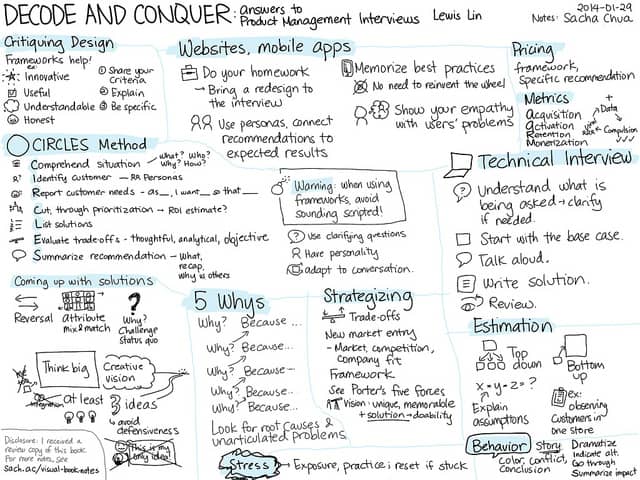 DECODE AND CONQUER: Answers to
Product Management Interviews
Lewis Lin
2014-01-29
Notes: Sacha Chua
Critiquing Design
Frameworks help!
ex:
Innovative
Useful
Understandable
Honest
① Share your
criteria
② Explain
③ Be specific
Websites, mobile apps
Do your homework
→ Bring a redesign to
the interview
Use personas, connect
recommendations to
expected results
Memorize best practices
No need to reinvent the wheel
Show your empathy
with users' problems
Pricing
framework,
specific recommendation
Metrics
Acquisition
Activation
Retention
Monetization
+
Data
Risk
Compulsion
CIRCLES Method
Comprehend situation
What? Who?
Why? How?
Identify customer - Personas
Report customer needs - as__, I want__ so that__
Cut, through prioritization → ROI estimate?
List solutions
Evaluate trade-offs - thoughtful, analytical, objective
Summarize recommendation - What,
recap,
Why vs others
Warning: when using
frameworks, avoid
sounding scripted!
Use clarifying questions
Have personality
adapt to conversation.
Technical Interview
Understand what is
being asked → clarify
if needed.
Start with the base case.
Talk aloud.
Write solution.
Review.
Coming up with solutions
Reversal
attribute
mix & match
?
Why?
Challenge
status quo
Think big
Creative
vision
integration
at least 3 ideas
↓ avoid
defensiveness
This is my
only idea!
5 Whys
Why? Because ...
Why? Because ...
Why? Because -
Why? Because..
Why? Because ...
Look for root causes &
unarticulated problems.
Strategizing
Trade-offs
New market entry
- Market, competition,
company fit
Framework
See Porter's five forces
Vision: unique, memorable
+ solution → doability
Estimation
Top
down
Bottom
up
x - y - z = ?
Explain
assumptions
ex:
observing
customers in
one store
Stress → Exposure, practice; reset if stuck
Behavior
Story
Color, conflict,
conclusion
Dramatize
Indicate alt.
Go through
Summarize impact
Disclosure: I received a
review copy of this book.
For more notes, see
sach.ac/visual-book-notes